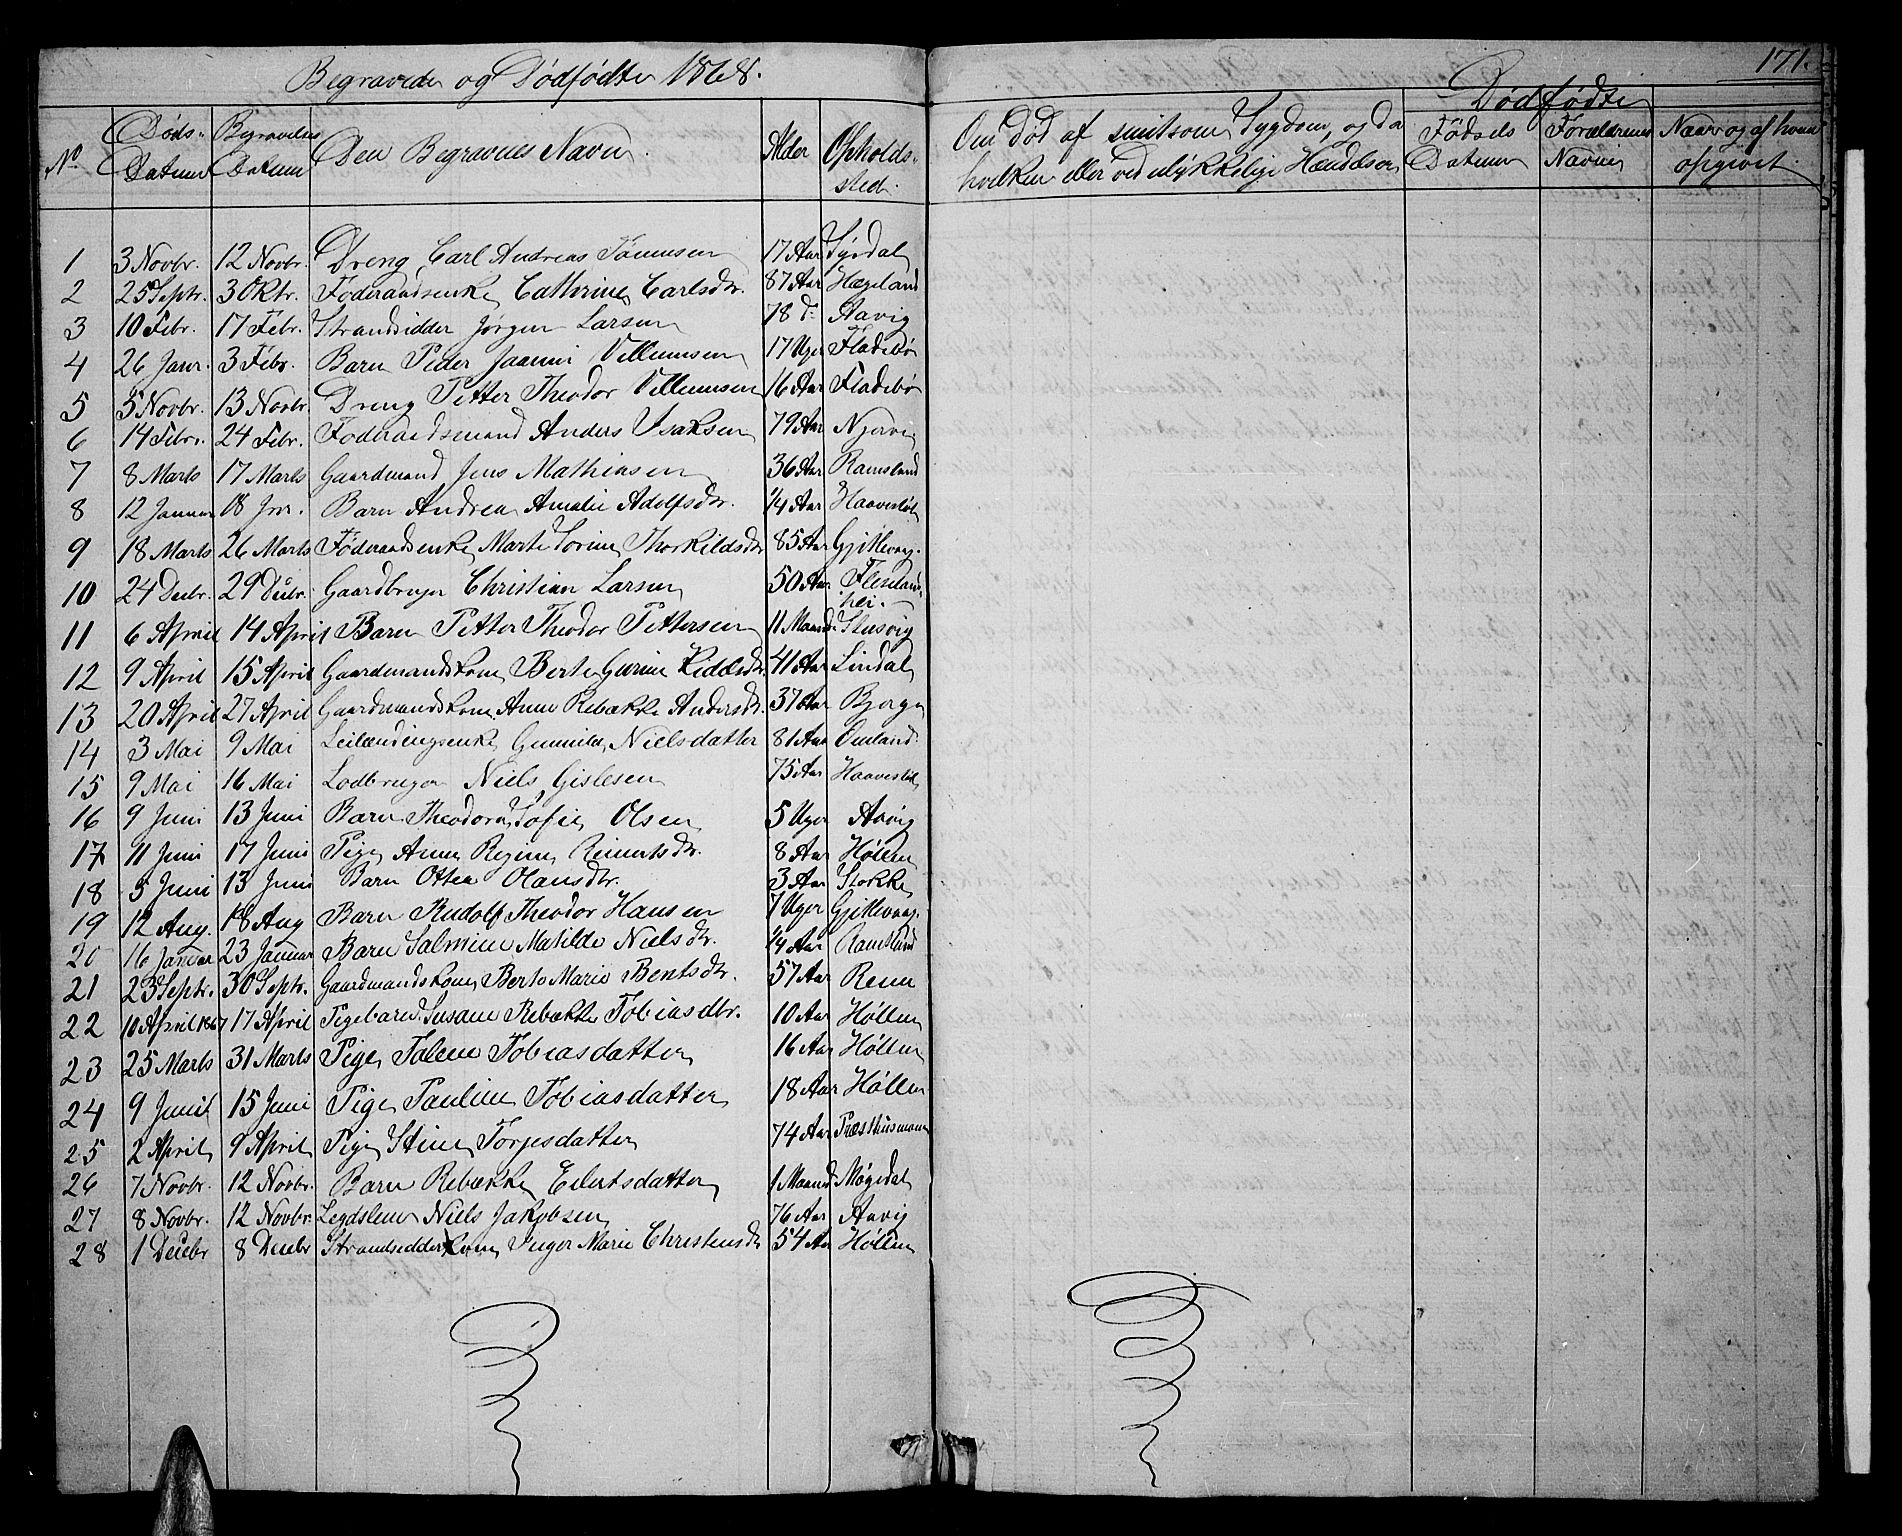 Begravede og Dødfødte 1868.
171.
No. Døds- Datum Begravelses Datum Den Begravnes Navn. Alder Opholds- sted. Om død af smitsom Sygdom, og da hvilken eller ved ulykkelige Hændelser Dødfødte Fødsels Datum Forældrenes Navne Naar og af hvem opgivet.
1 3 Novbr. 12 Novbr. Dreng Carl Andreas Tønnesen 17 Aar
2 25 Septr. 3 Oktr. Føderaadsenke Cathrine Carlsdtr. 87 Aar Hægeland
3 10 Febr. 17 Febr. Strandsidder Jørgen Larsen 78 d° Aavig
4 26 Janr. 3 Febr. Barn Peder Villumsen 17 Uger Fladebø
5 5 Novbr. 13 Novbr. Dreng Petter Theodor Villumsen 16 Aar Fladebø
6 14 Febr. 24 Febr. Føderaadsmand Anders Isaksen 79 Aar
7 8 Marts 17 Marts Gaardmand Jens Mathiasen 36 Aar Ramsland
8 12 Januar 18 Jnr. Barn Andrea Amalie Adolfsdtr. 1/4 Aar
9 18 Marts 26 Marts Føderaadsenke Marte Torine Thorkildsdtr 85 Aar Gjitlevaag.
10 24 Decbr. 29 Decbr. Gaardbruger Christian Larsen 50 Aar
hei.
11 6 April 14 April Barn Petter Theodor Pettersen 11 Maaned. Stusvig
12 9 April 15 April Gaardmandskone Berte Gurine 41 Aar Lindal
13 20 April 27 April Gaardmandskone Anne Rebække Andersdtr. 37 Aar Bjerge
14 3 Mai 9 Mai Leilændingsenke Gunnild Nielsdatter 81 Aar Omland.
15 9 Mai 16 Mai Lodbruger Niels Gislesen 75 Aar
16 9 Juni 13 Juni Barn Theodora Sofie Olsen 5 Uger Aavig
17 11 Juni 17 Juni Pige Anne Regine Reinertsdtr. 8 Aar Høllen
18 5 Juni 13 Juni Barn Ottea Olausdtr. 3 Aar Stokke
19 12 Aug. 18 Aug Barn Rudolf Theodor Hansen 7 Uger Gjitlevaag.
20 16 Januar 23 Januar Barn Salmine Matilde Nielsdtr. 1/4 Aar Ramsland
21 23 Septr. 30 Septr. Gaardmandskone Berte Marie Bentsdtr. 57 Aar Renn
22 10 April 1867 17 April Pigebarn Susane Rebække Tobiasdtr. 10 Aar Høllen
23 25 Marts 31 Marts Pige Talene Tobiasdatter 16 Aar Høllen
24 9 Juni 15 Juni Pige Pauline Tobiasdatter 18 Aar Høllen
25 2 April 9 April Pige Stine Torjesdatter 74 Aar
26 7 Novbr. 12 Novbr. Barn Rebække Eilertsdatter 1 Maaned Møgedal
27 8 Novbr. 12 Novbr. Legdslem Niels Jakobsen 76 Aar Aavig
28 1 Decbr 8 Decbr Strandsidderkone Inger Marie Christensdtr 54 Aar Høllen